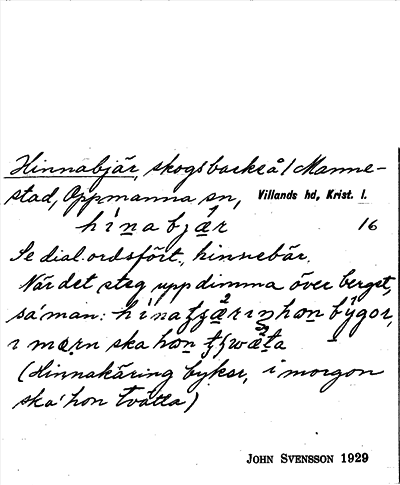 Hinnabjär, skogsbacke å/Manne-
stad, Oppmanna sn, Villands hd, Krist. l.
hinabjær 16
Se dial. ordsfört., hinnebär.
När det steg upp dimma över berget,
sa' man: hon bygor,
i mɷrn ska hon
(Hinnakäring bykor, i morgon
ska' hon tvätta)
JOHN SVENSSON 1929